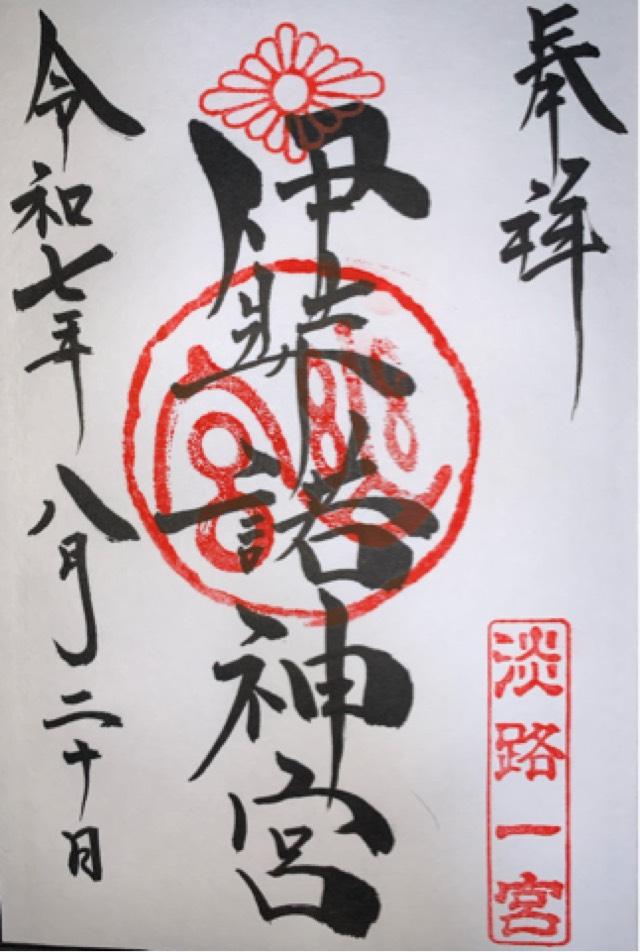 奉拝
淡路一宮
伊弉諾神宮
令和七年八月二十日